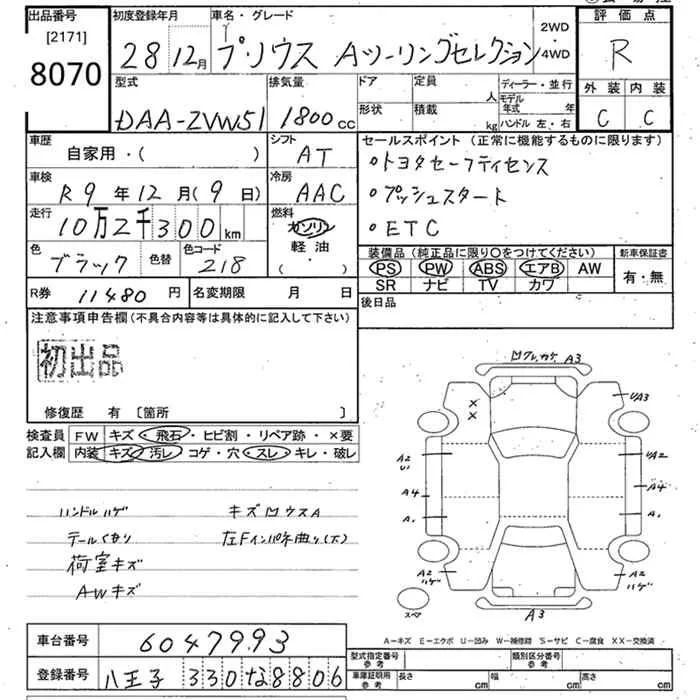 出品番号
[2171]
8070
初度登録年月
28 12月
車名・グレード
プリウス Aツーリングセレクション
2WD
・
4WD
評価点
R
型式
DAA-ZVW51
排気量
1800cc
ドア
定員
人
形状
積載
kg
ディーラー・並行
モデル年式 年
ハンドル 左・右
外装 内装
C C
車歴
自家用・( )
シフト
AT
車検
R9年12月(9日)
冷房
AAC
走行
10万2千300km
燃料
ガソリン
軽油
( )
色
ブラック
色替
色コード
218
セールスポイント (正常に機能するものに限ります)
•トヨタセーフティセンス
•プッシュスタート
•ETC
装備品(純正品に限り○をつけてください)
PS PW ABS エアB AW
SR ナビ TV カワ
新車保証書
有・無
R券 11480円
名変期限 月 日
後日品
注意事項申告欄(不具合内容等は具体的に記入して下さい)
初出品
修復歴 有 [箇所 ]
検査員
記入欄
FW キズ・飛石・ヒビ割・リペア跡・×要
内装 キズ・汚レ・コゲ・穴・スレ・キレ・破レ
ハンドルハゲ
テールくもり
荷室キズ
AWキズ
キズ凹ウスA
左Fインパネ曲り(下)
凹クレ,カケ A3
×
×
UA3
A2
U1
UA2
A4
A4
A1
A1
A2
ハゲ
A2
ハゲ
スペア
A3
A-キズ E-エクボ U-凹み W-補修跡 S-サビ C-腐食 XX-交換済
車台番号
6047993
登録番号
八王子 330 な 8806
型式指定番号
参考
類別区分番号
参考
車庫証明用
参考
長さ cm
幅 cm
高さ cm